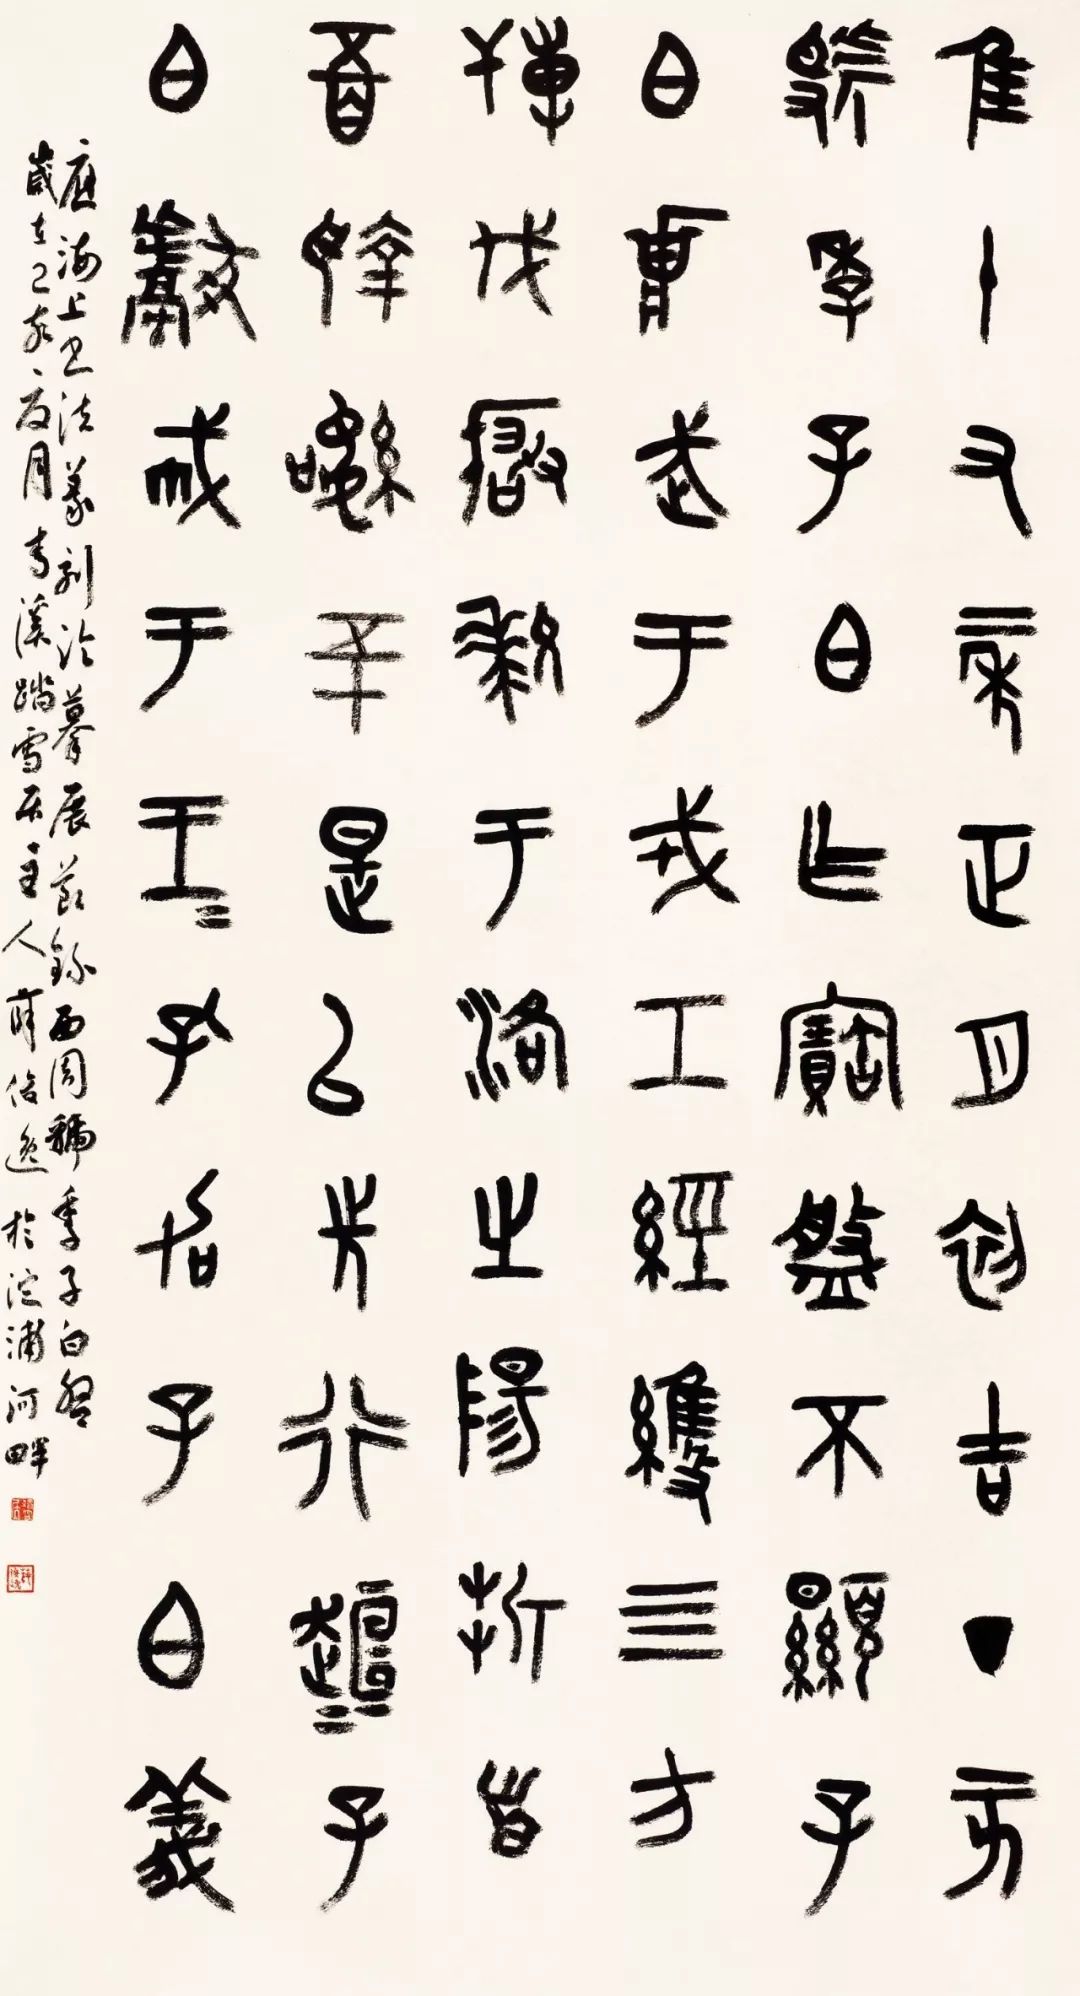 隹十又二年正月初吉丁亥
虢季子白乍寶盤不顯子
白𤕌武于戎工經維四方
搏伐玁狁于洛之陽折首
五百執訊五十是以先行趄=子
白獻馘于王=孔加子白義
應海上書法篆刻臨摹展節錄西周虢季子白盤
歲在己亥之夏月青溪踏雪居主人薛俊逸於淀浦河畔